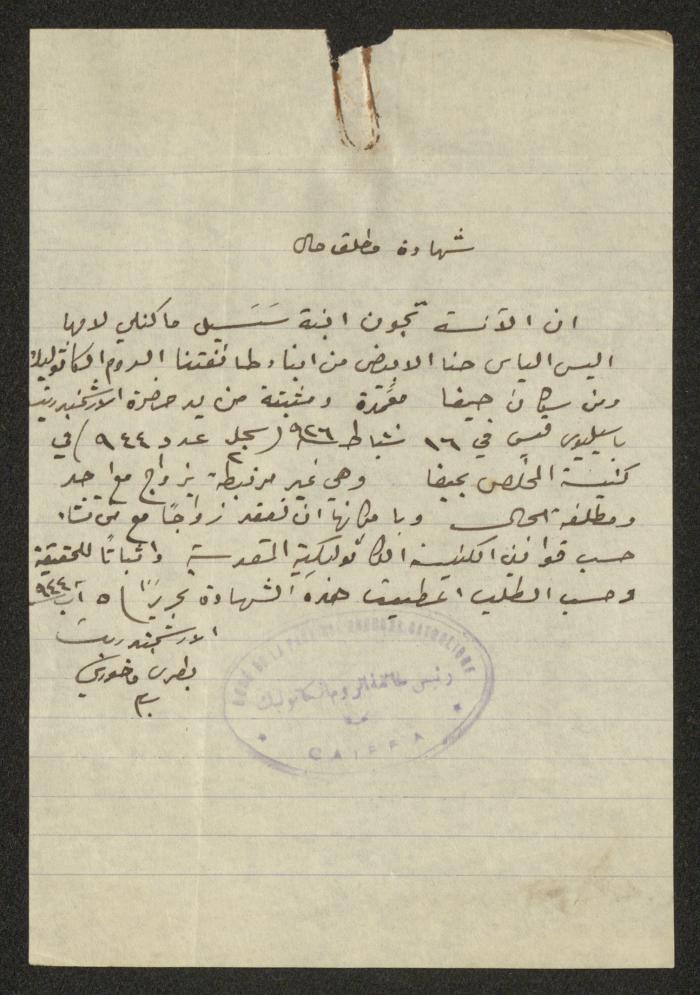 شهادة مطلق حال
ان الآنسة جون ابنة سَسَيل ماكنلي لامها
اليس الياس حنا الابيض من ابناء طائفتنا الروم الكاثوليك
ومن سكان حيفا معمَّدة ومثبتة من يد حضرة الارشمندريت
باسيليوس في ١٦ شباط سنة ٩٢٦ (سجل عدد ٩٤٤) في
كنيسة المخلص بحيفا وهي غير مرتبطة بزواج مع احد
ومطلقة الحال وبامكانها ان تعقد زواجًا مع من تشاء
حسب قوانين الكنيسة الكاثوليكية المقدسة واثباتًا للحقيقة
وحسب الطلب اعطيت هذه الشهادة تحريرًا ٥ آب ٩٤٤
الارشمندريت
بطرس فاخوري
CURÉ DE LA PAROISSE GRECQUE CATHOLIQUE
رئيس طائفة الروم الكاثوليك
CAIFFA